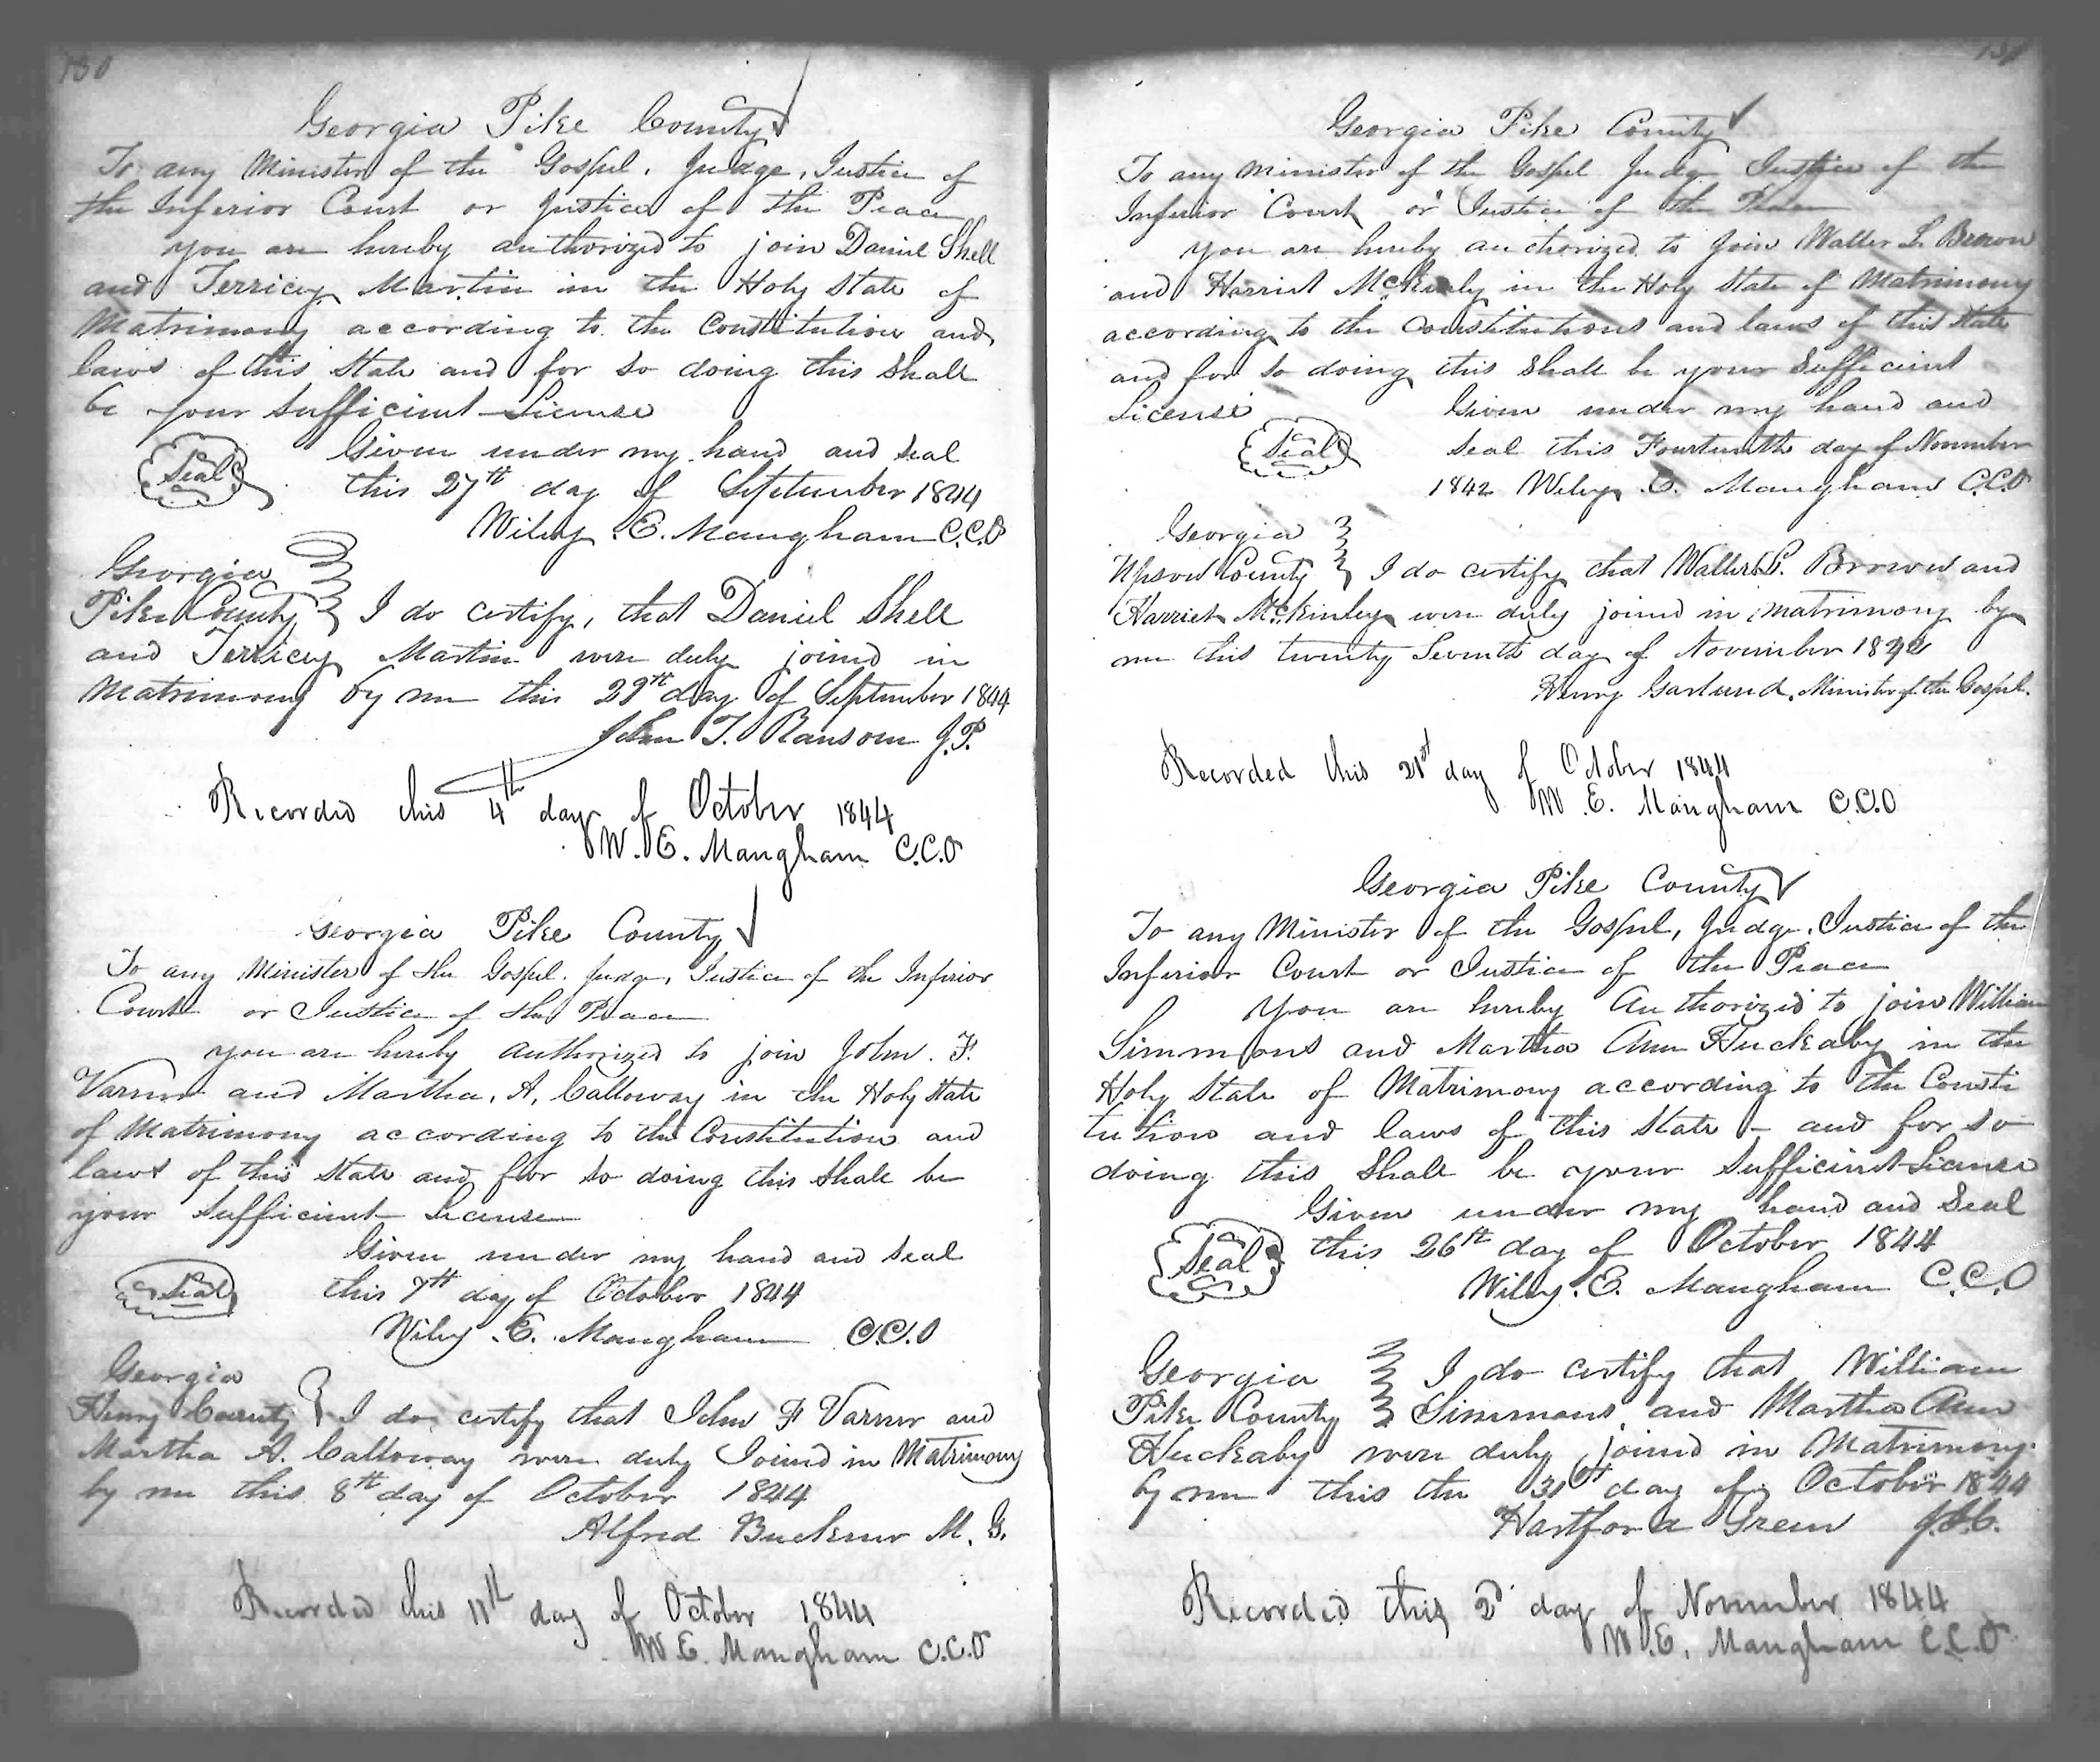 130
Georgia Pike County
To any Minister of the Gospel, Judge, Justice of
the Inferior Court or Justice of the Peace
you are hereby authorized to join Daniel Shell
and Terricy Martin in the Holy State of
Matrimony according to the Constitution and
laws of this State and for so doing this Shall
be your Sufficient License
Seal
Given under my hand and seal
this 27th day of September 1844
Wiley E. Mangham C.C.O
Georgia
Pike County I do certify, that Daniel Shell
and Terricy Martin were duly joined in
Matrimony by me this 29th day of September 1844
John T. Ransom J.P.
Recorded this 4th day of October 1844
W. E. Mangham C.C.O
Georgia Pike County
To any Minister of the Gospel. Judge, Justice of the Inferior
Court or Justice of the Peace
you are hereby authorized to join John. F.
Varner and Martha. A. Calloway in the Holy State
of Matrimony according to the Constitution and
laws of this State and for so doing this Shall be
your Sufficient License
Given under my hand and seal
Seal
this 7th day of October 1844
Wiley E. Mangham C.C.O
Georgia
Henry County I do certify that John F Varner and
Martha A. Calloway were duly Joined in Matrimony
by me this 8th day of October 1844
Alfred Buckner M. G.
Recorded this 11th day of October 1844
W E. Mangham C.C.O
131
Georgia Pike County
To any Minister of the Gospel Judge Justice of the
Inferior Court or Justice of the Peace
you are hereby authorized to join Walter L. Brown
and Harriet McKinly in the Holy State of Matrimony
according to the Constitutions and laws of this State
and for so doing this Shall be your Sufficient
License
Given under my hand and
Seal
Seal this Fourteenth day of November
1842 Wiley E. Mangham C.C.O
Georgia
Upson County I do certify that Walter L. Brown and
Harriet McKinley were duly joined in matrimony by
me this twenty Seventh day of November 1842
Henry Garland, Minister of the Gospel.
Recorded this 21st day of October 1844
W E. Mangham C.C.O
Georgia Pike County
To any Minister of the Gospel, Judge, Justice of the
Inferior Court or Justice of the Peace
you are hereby Authorized to join William
Simmons and Martha Ann Huckaby in the
Holy State of Matrimony according to the Consti
tution and laws of this State – and for so
doing this Shall be your Sufficient License
Given under my hand and Seal
Seal
this 26th day of October 1844
Wiley. E. Mangham C.C.O
Georgia I do certify that William
Pike County Simmons, and Martha Ann
Huckaby were duly joined in Matrimony
by me this the 31st day of October 1844
Hartford Green J.I.C.
Recorded this 2d day of November 1844
W. E. Mangham C.C.O